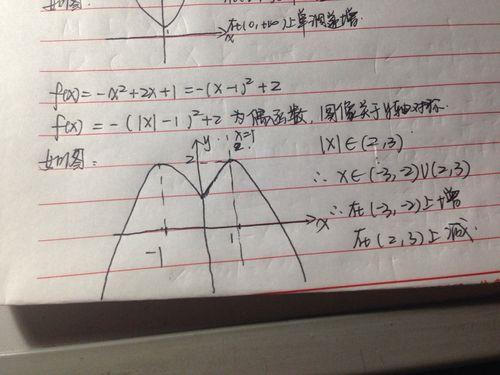 如图:
在(0,+∞)上单调递增.
x
f(x)=-x²+2x+1=-(x-1)²+2
f(x)=-(|x|-1)²+2 为偶函数, 图像关于y轴对称.
如图:
y
x=1
2
|x|∈(2,3)
∴ x∈(-3,-2)∪(2,3)
x
∴在(-3,-2)上增
-1
1
在(2,3)上减.